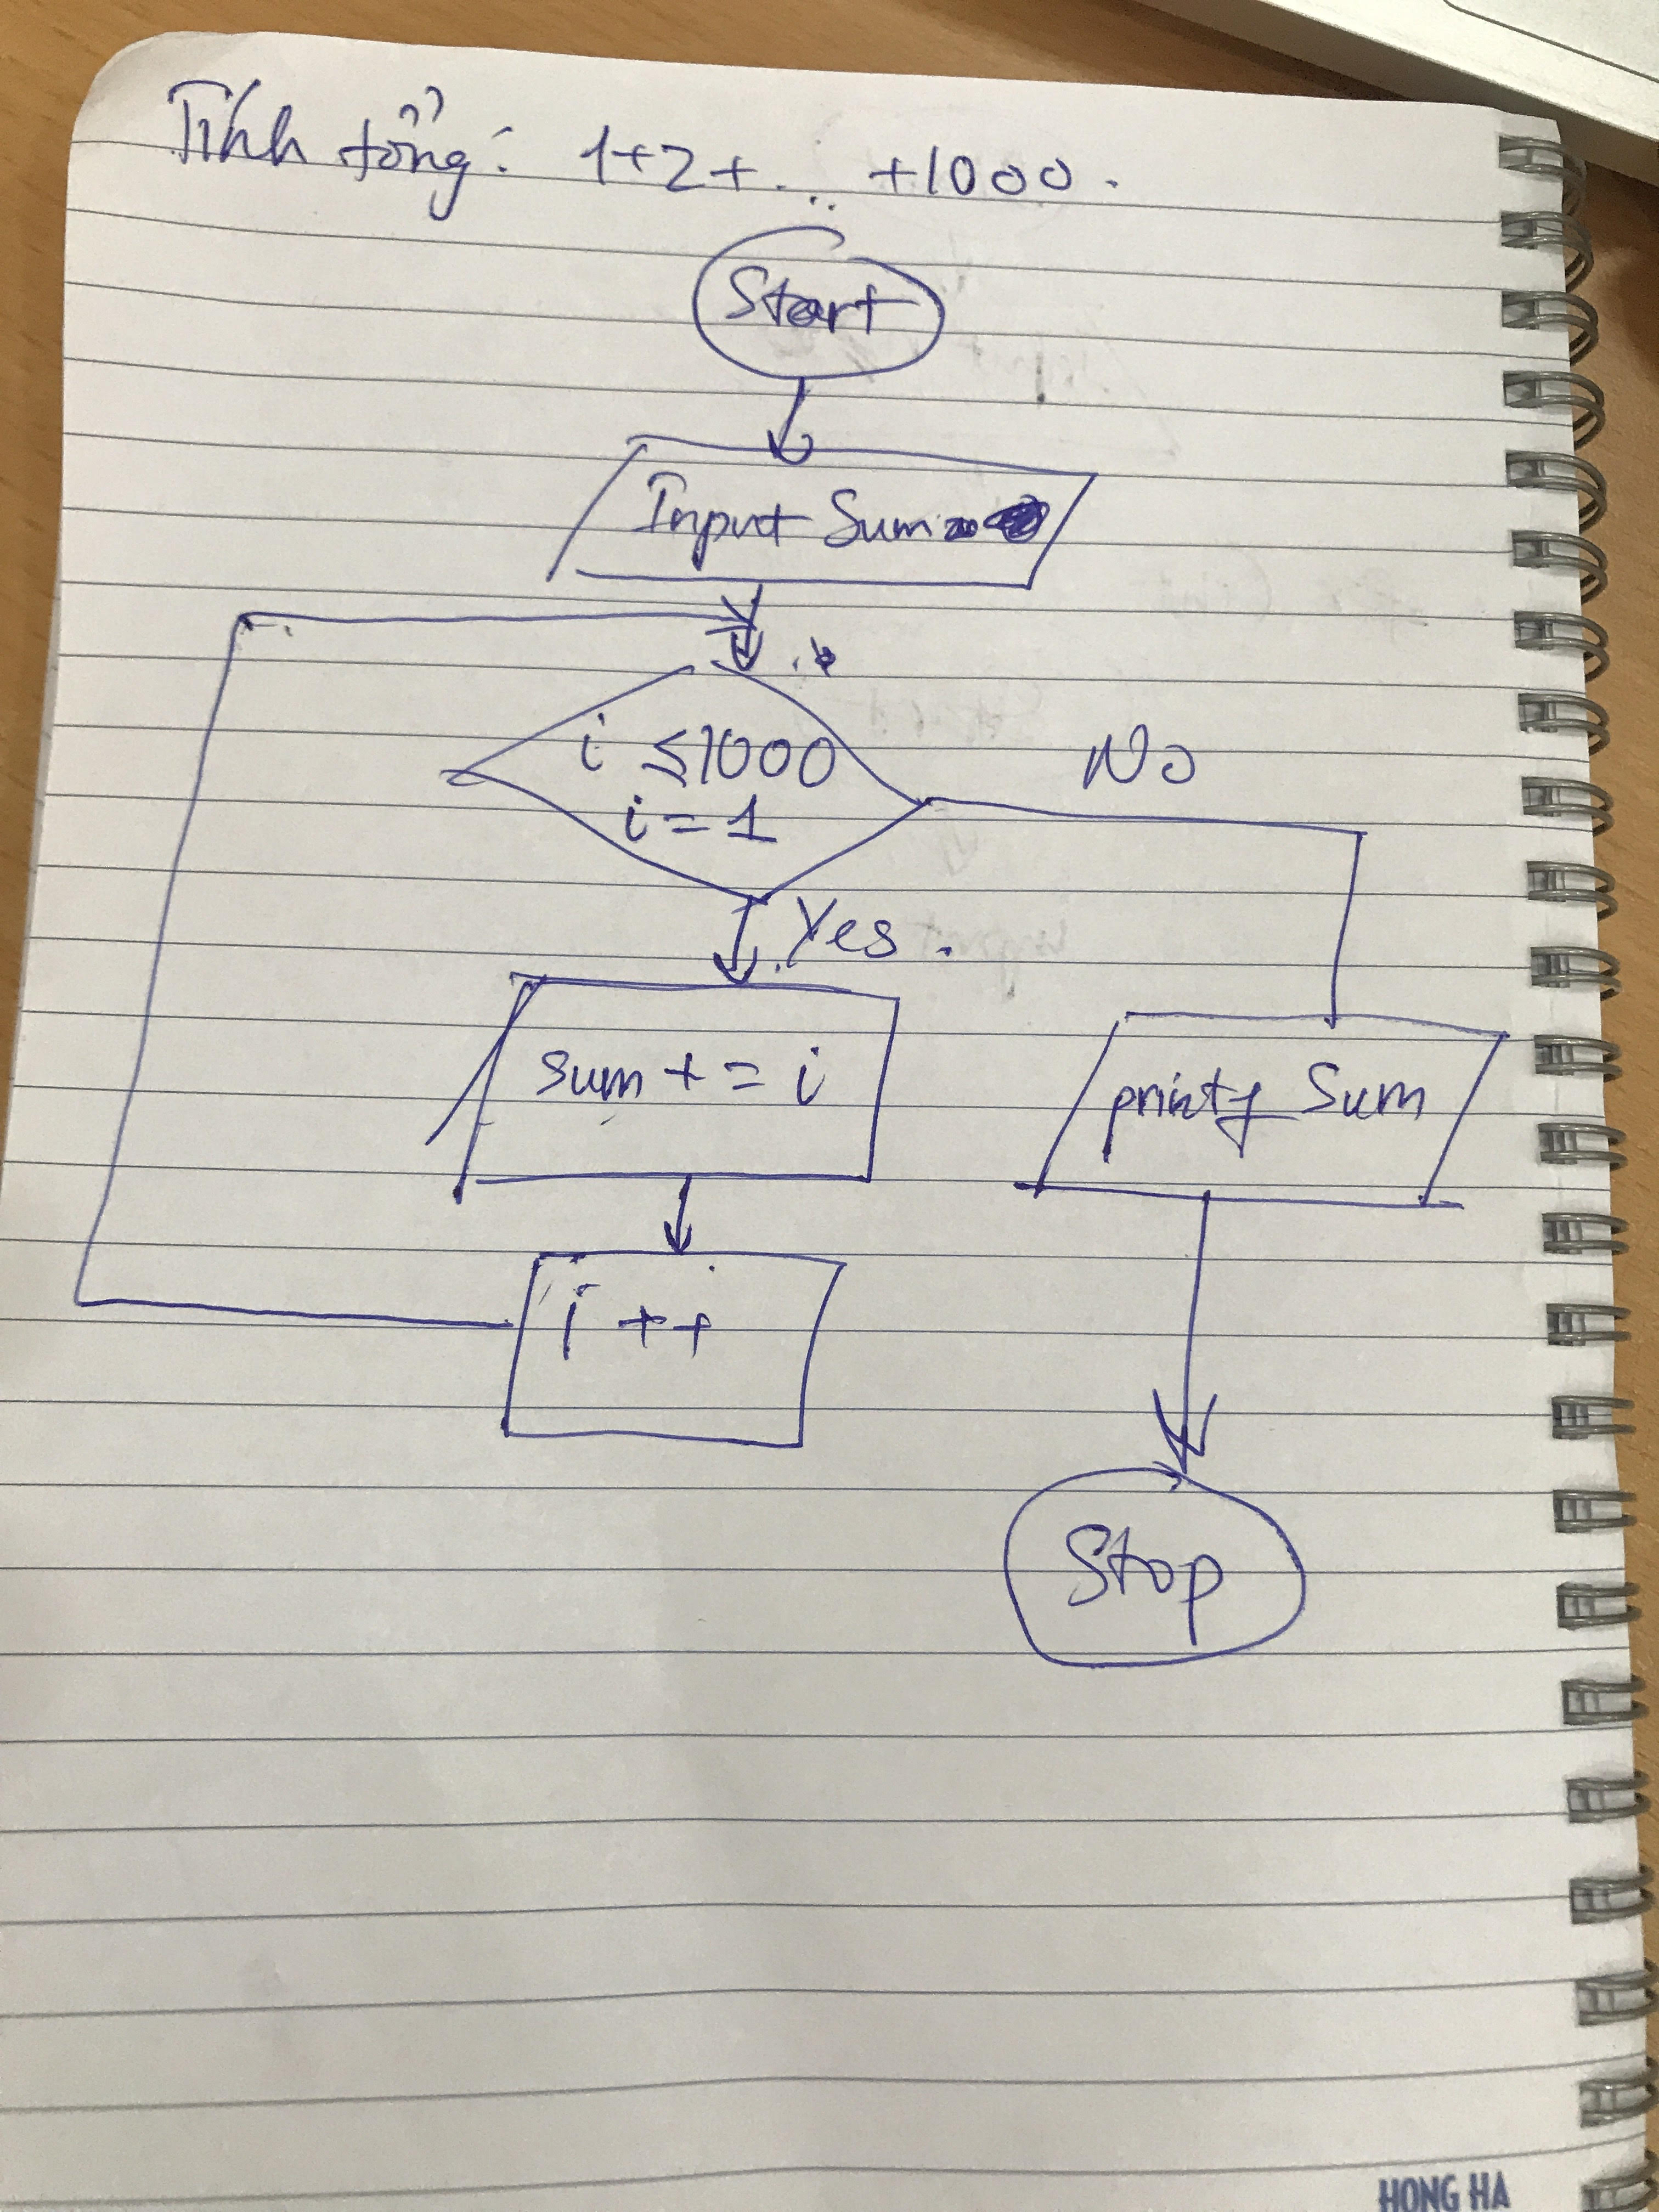 Tính tổng: 1+2+... +1000.
Start
Input Sum
i ≤1000
i = 1
No
Yes.
sum + = i
printf Sum
i ++
Stop
HONG HA